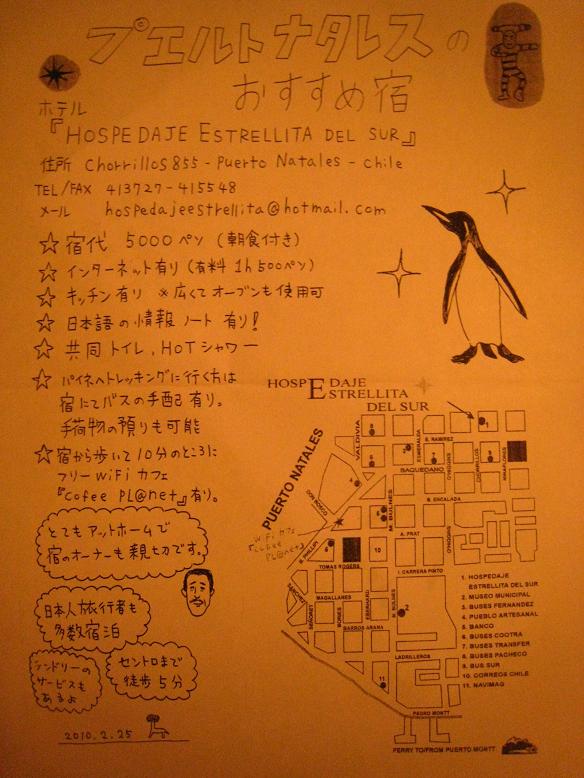 プエルトナタレスの
おすすめ宿
ホテル
『HOSPEDAJE ESTRELLITA DEL SUR』
住所 Chorrillos 855 - Puerto Natales - Chile
TEL/FAX 413727 - 415548
メール hospedajeestrellita@hotmail.com
☆ 宿代 5000ペソ (朝食付き)
☆ インターネット有り (有料 1h 500ペソ)
☆ キッチン有り ※広くてオーブンも使用可
☆ 日本語の情報ノート有り!
☆ 共同トイレ、HOTシャワー
☆ パイネへトレッキングに行く方は
宿にてバスの手配有り。
手荷物の預りも可能
☆ 宿から歩いて10分のところに
フリーWiFiカフェ
『Cofee PL@net』有り。
とてもアットホームで
宿のオーナーも親切です。
日本人旅行者も
多数宿泊
ランドリーの
サービスも
あるよ
セントロまで
徒歩5分
2010.2.25
HOSPEDAJE
ESTRELLITA
DEL SUR
PUERTO NATALES
VALDIVIA
ESMERALDA
E. RAMIREZ
CHORRILLOS
MIRAFLORES
BAQUEDANO
DON BOSCO
M. BULNES
B. ENCALADA
O'HIGGINS
WiFiカフェ
PL@net
B. PHILLIPI
A. PRAT
TOMAS ROGERS
I. CARRERA PINTO
MAGALLANES
BARROS ARANA
LADRILLEROS
PEDRO MONTT
FERRY TO/FROM PUERTO MONTT
1. HOSPEDAJE
ESTRELLITA DEL SUR
2. MUSEO MUNICIPAL
3. BUSES FERNANDEZ
4. PUEBLO ARTESANAL
5. BANCO
6. BUSES COOTRA
7. BUSES TRANSFER
8. BUSES PACHECO
9. BUS SUR
10. CORREOS CHILE
11. NAVIMAG